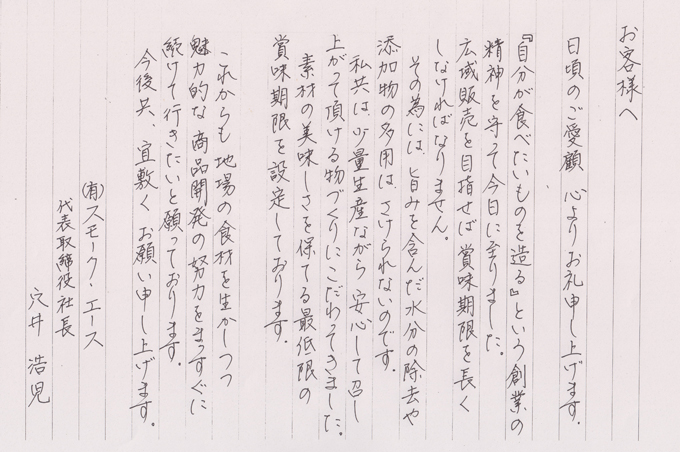 お客様へ
日頃のご愛顧 心よりお礼申し上げます。
『自分が食べたいものを造る』という創業の
精神を守って今日に至りました。
広域販売を目指せば賞味期限を長く
しなければなりません。
その為には、旨みを含んだ水分の除去や
添加物の多用は、さけられないのです。
私共は、少量生産ながら 安心して召し
上がって頂ける物づくりにこだわってきました。
素材の美味しさを保てる最低限の
賞味期限を設定しております。
これからも 地場の食材を生かしつつ
魅力的な商品開発の努力をまっすぐに
続けて行きたいと願っております。
今後共、宜敷く お願い申し上げます。
(有)スモーク・エース
代表取締役社長
穴井 浩児